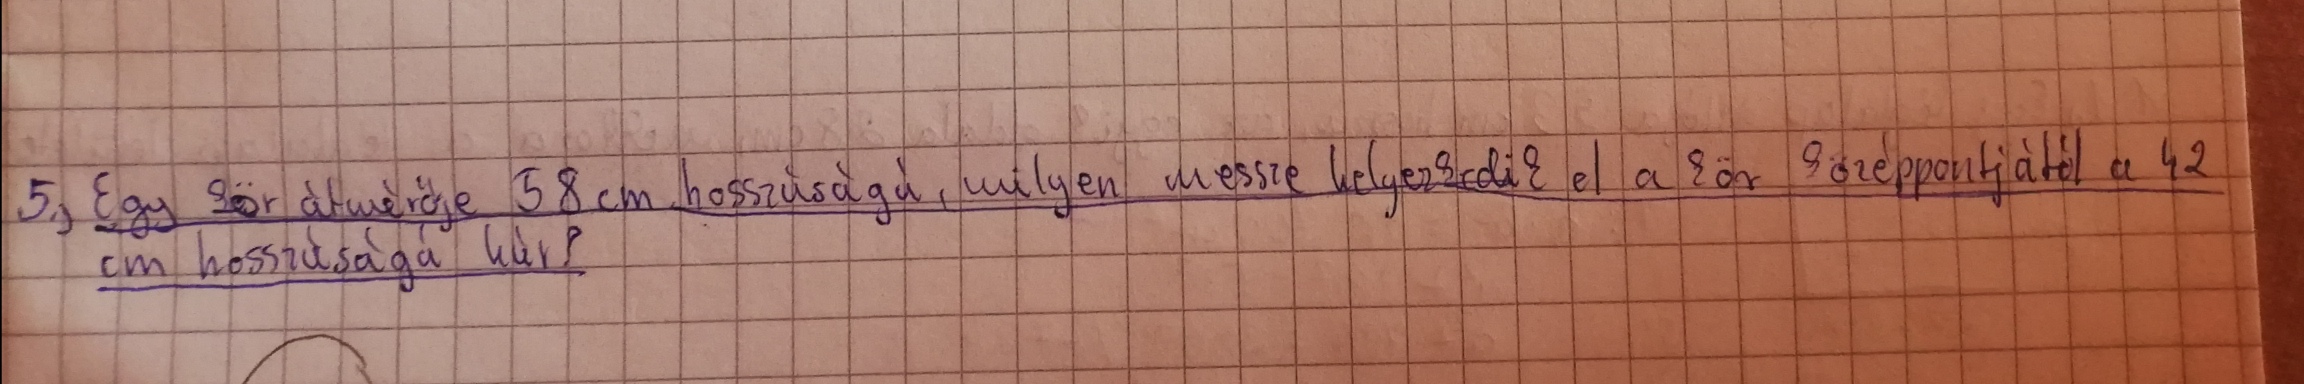 5, Egy kör átmérője 58 cm hosszúságú, milyen messze helyezkedik el a kör középpontjától a 42
cm hosszúságú húr?